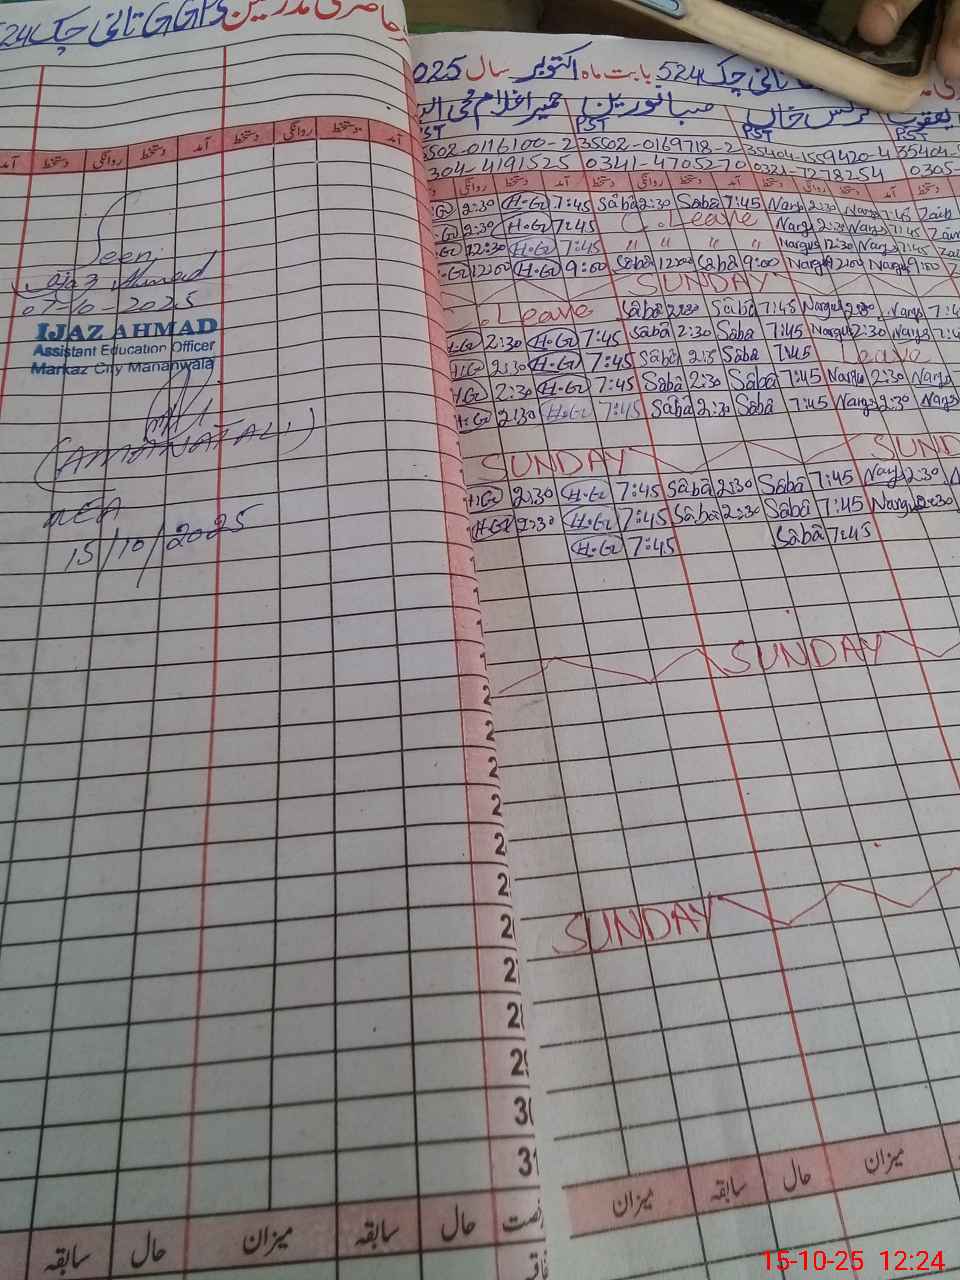 حاضری مدرسین GGPS تانی چک 524
آمد دستخط روانگی دستخط آمد دستخط روانگی دستخط
Seen
Ijaz Ahmad
07-10-2025
IJAZ AHMAD
Assistant Education Officer
Markaz City Mananwala
(AMANAT ALI)
MEA
15/10/2025
سابقہ حال میزان سابقہ حال
تانی چک 524 بابت ماہ اکتوبر سال 2025
حمیرا غلام صبا نورین نرگس خاں یعقوب
PST PST PST PST
35502-0116100-2 35502-0169718-2 35404-1559420-4 35404-
304-4191525 0341-4705270 0321-7278254 0305-
روانگی دستخط آمد دستخط روانگی دستخط آمد دستخط روانگی دستخط آمد دستخط
H-G 2:30 H-G 7:45 Saba 2:30 Saba 7:45 Narg 2:30 Narg 7:45 Zain
H-G 2:30 H-G 7:45 C.Leave Narg 2:30 Narg 7:45 Zain
12:30 H-G 7:45 〃 〃 〃 〃 Nargus 12:30 Narg 7:45
H-G 12:00 H-G 9:00 Saba 12:00 Saba 9:00 Narg 12:00 Narg 9:00
SUNDAY
C.Leave Saba 2:30 Saba 7:45 Nargus 2:30 Nargs 7:45
H-G 2:30 H-G 7:45 Saba 2:30 Saba 7:45 Nargus 2:30 Nargs 7:45
H-G 2:30 H-G 7:45 Saba 2:5 Saba 7:45 Leave
H-G 2:30 H-G 7:45 Saba 2:30 Saba 7:45 Nargu 2:30 Nargs
H-G 2:30 H-G 7:45 Saba 2:30 Saba 7:45 Nargs 2:30 Nargs
SUNDAY SUND
H-G 2:30 H-G 7:45 Saba 2:30 Saba 7:45 Nargs 2:30
H-G 2:30 H-G 7:45 Saba 2:30 Saba 7:45 Nargus 2:30
H-G 7:45 Saba 7:45
SUNDAY
SUNDAY
29
30
31
میزان سابقہ حال میزان
15-10-25 12:24